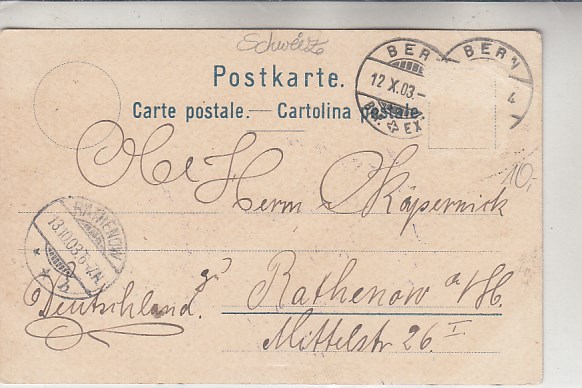 Schweiz
Postkarte.
Carte postale. — Cartolina postale.
BERN
12 X.03.–
EX
BERN
4
Herrn Käpernick
10.-
RATHENOW
13.10.03.6-7.N.
Rathenow a/H.
Deutschland.
Mittelstr 26. I.